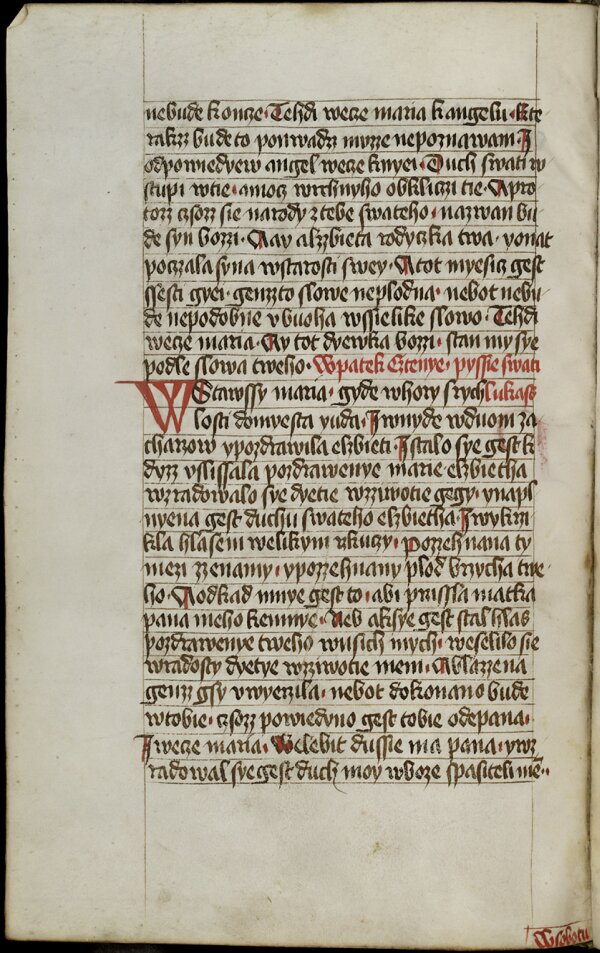 nebude konce · Tehdi wece maria k angelu · Kte
rakzz bude to ponwadz myzze nepoznawam · I
odpowiedyew angel wece k nyei · Duch swati w
stupi w tie · a moc wrchnyho obkliczi tie · A pro
tozz czozz sie narody z tebe swateho · nazwan bu
de syn bozzi · A ay alzzbieta rodyczka twa · yonat
poczala syna w starosti swey · A tot myesic gest
ssesti gyei · genzto slowe neplodna · nebot nebu
de nepodobne v buoha wssielike slowo · Tehdi
wece maria · Ay tot dyewka bozzi · stan my sye
podle slowa tweho · W patek Cztenye · pyssie swati
WStawssy maria · gyde w hory s rych lukass
losti do myesta yuda · I wnyde w duom za
charzow y pozdrawila elzbieti · I stalo sye gest k
dyzz vslissala pozdrawenye marie elzbietha
wzradowalo sye dyetie w zziwotie gegy · y napl
nyena gest duchu swateho elzbietha · I wykrzi
kla hlasem welikym rzkuczy · Pozzehnana ty
mezi zzenamy · y pozzehnany plod brzycha twe
ho · A odkad mnye gest to · abi prissla matka
pana meho ke mnye · Neb aksye gest stal hlas
pozdrawenye tweho w usich mych · weselilo sie
w radosty dyetye w zziwotie mem · A blazzena
genzz gsy vwyerzila · nebot dokonano bude
w tobie · czozz powiedyno gest tobie od pana ·
I wece maria · Welebit dussie ma pana · y wz
radowal sye gest duch moy w boze spasiteli mē ·
W sobotu